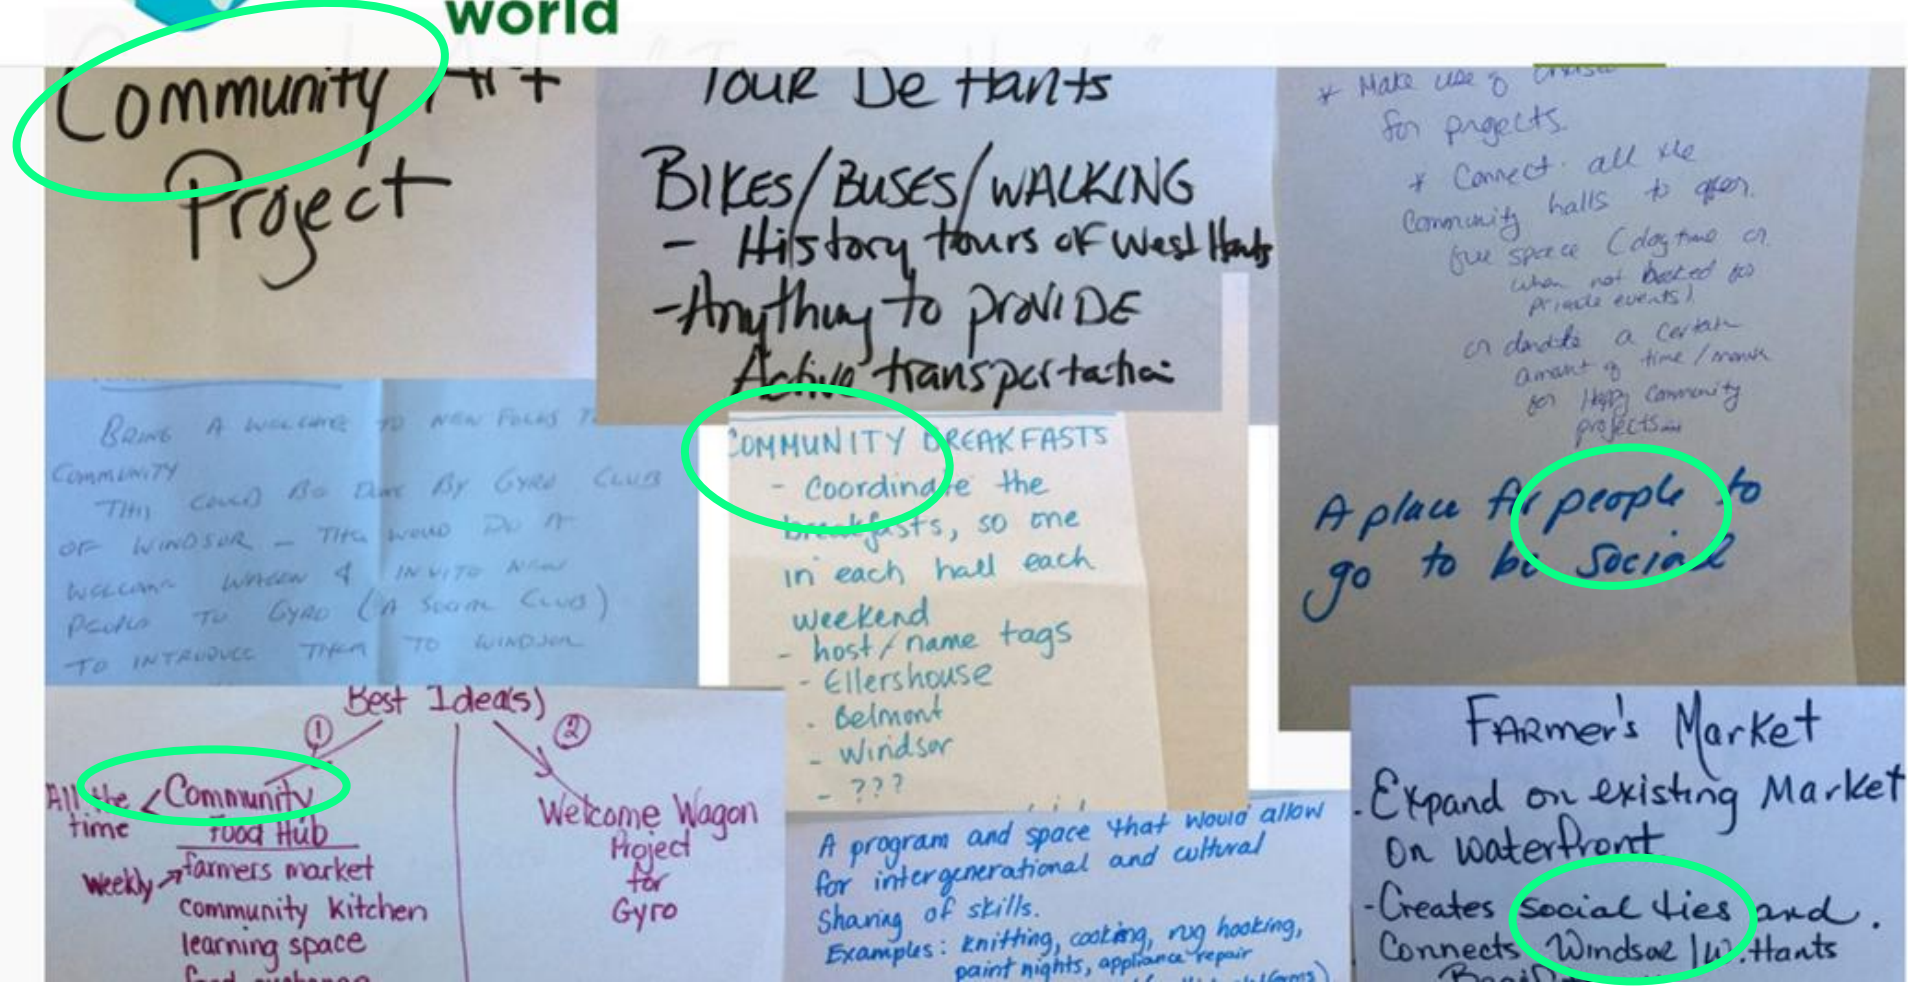 world
Community Art
Project
Tour De Hants
BIKES/BUSES/WALKING
- History tours of West Hants
- Anything to PROVIDE
Active transportation
* Make use of
for projects.
* Connect all the
Community halls to offer
free space (daytime or
when not booked for
private events)
or donate a certain
amount of time / month
for Happy Community
projects...
A place for people to
go to be social
BRING A WELCOME TO NEW FOLKS TO
COMMUNITY
THIS COULD BE DONE BY GYRO CLUB
OF WINDSOR - THIS WOULD DO A
WELCOME WAGON & INVITE NEW
PEOPLE TO GYRO (A SOCIAL CLUB)
TO INTRODUCE THEM TO WINDSOR
COMMUNITY BREAKFASTS
- Coordinate the
breakfasts, so one
in each hall each
weekend
- host/name tags
- Ellershouse
- Belmont
- Windsor
- ???
Best Idea(s)
① ②
All the < Community
time Food Hub
weekly farmers market
community kitchen
learning space
food exchange
Welcome Wagon
Project
for
Gyro
A program and space that would allow
for intergenerational and cultural
Sharing of skills.
Examples: knitting, cooking, rug hooking,
paint nights, appliance repair
FARmer's Market
- Expand on existing Market
On waterfront
- Creates social ties and
Connects Windsor/W.Hants